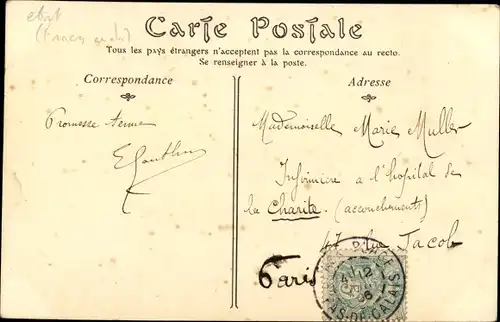 Carte Postale
Tous les pays étrangers n'acceptent pas la correspondance au recto.
Se renseigner à la poste.
Correspondance
Adresse
Promesse tenue
Mademoiselle Marie Muller
Infirmière a l'hopital de
la Charite (accouchements)
47 rue Jacob
Paris
PAS-DE-CALAIS